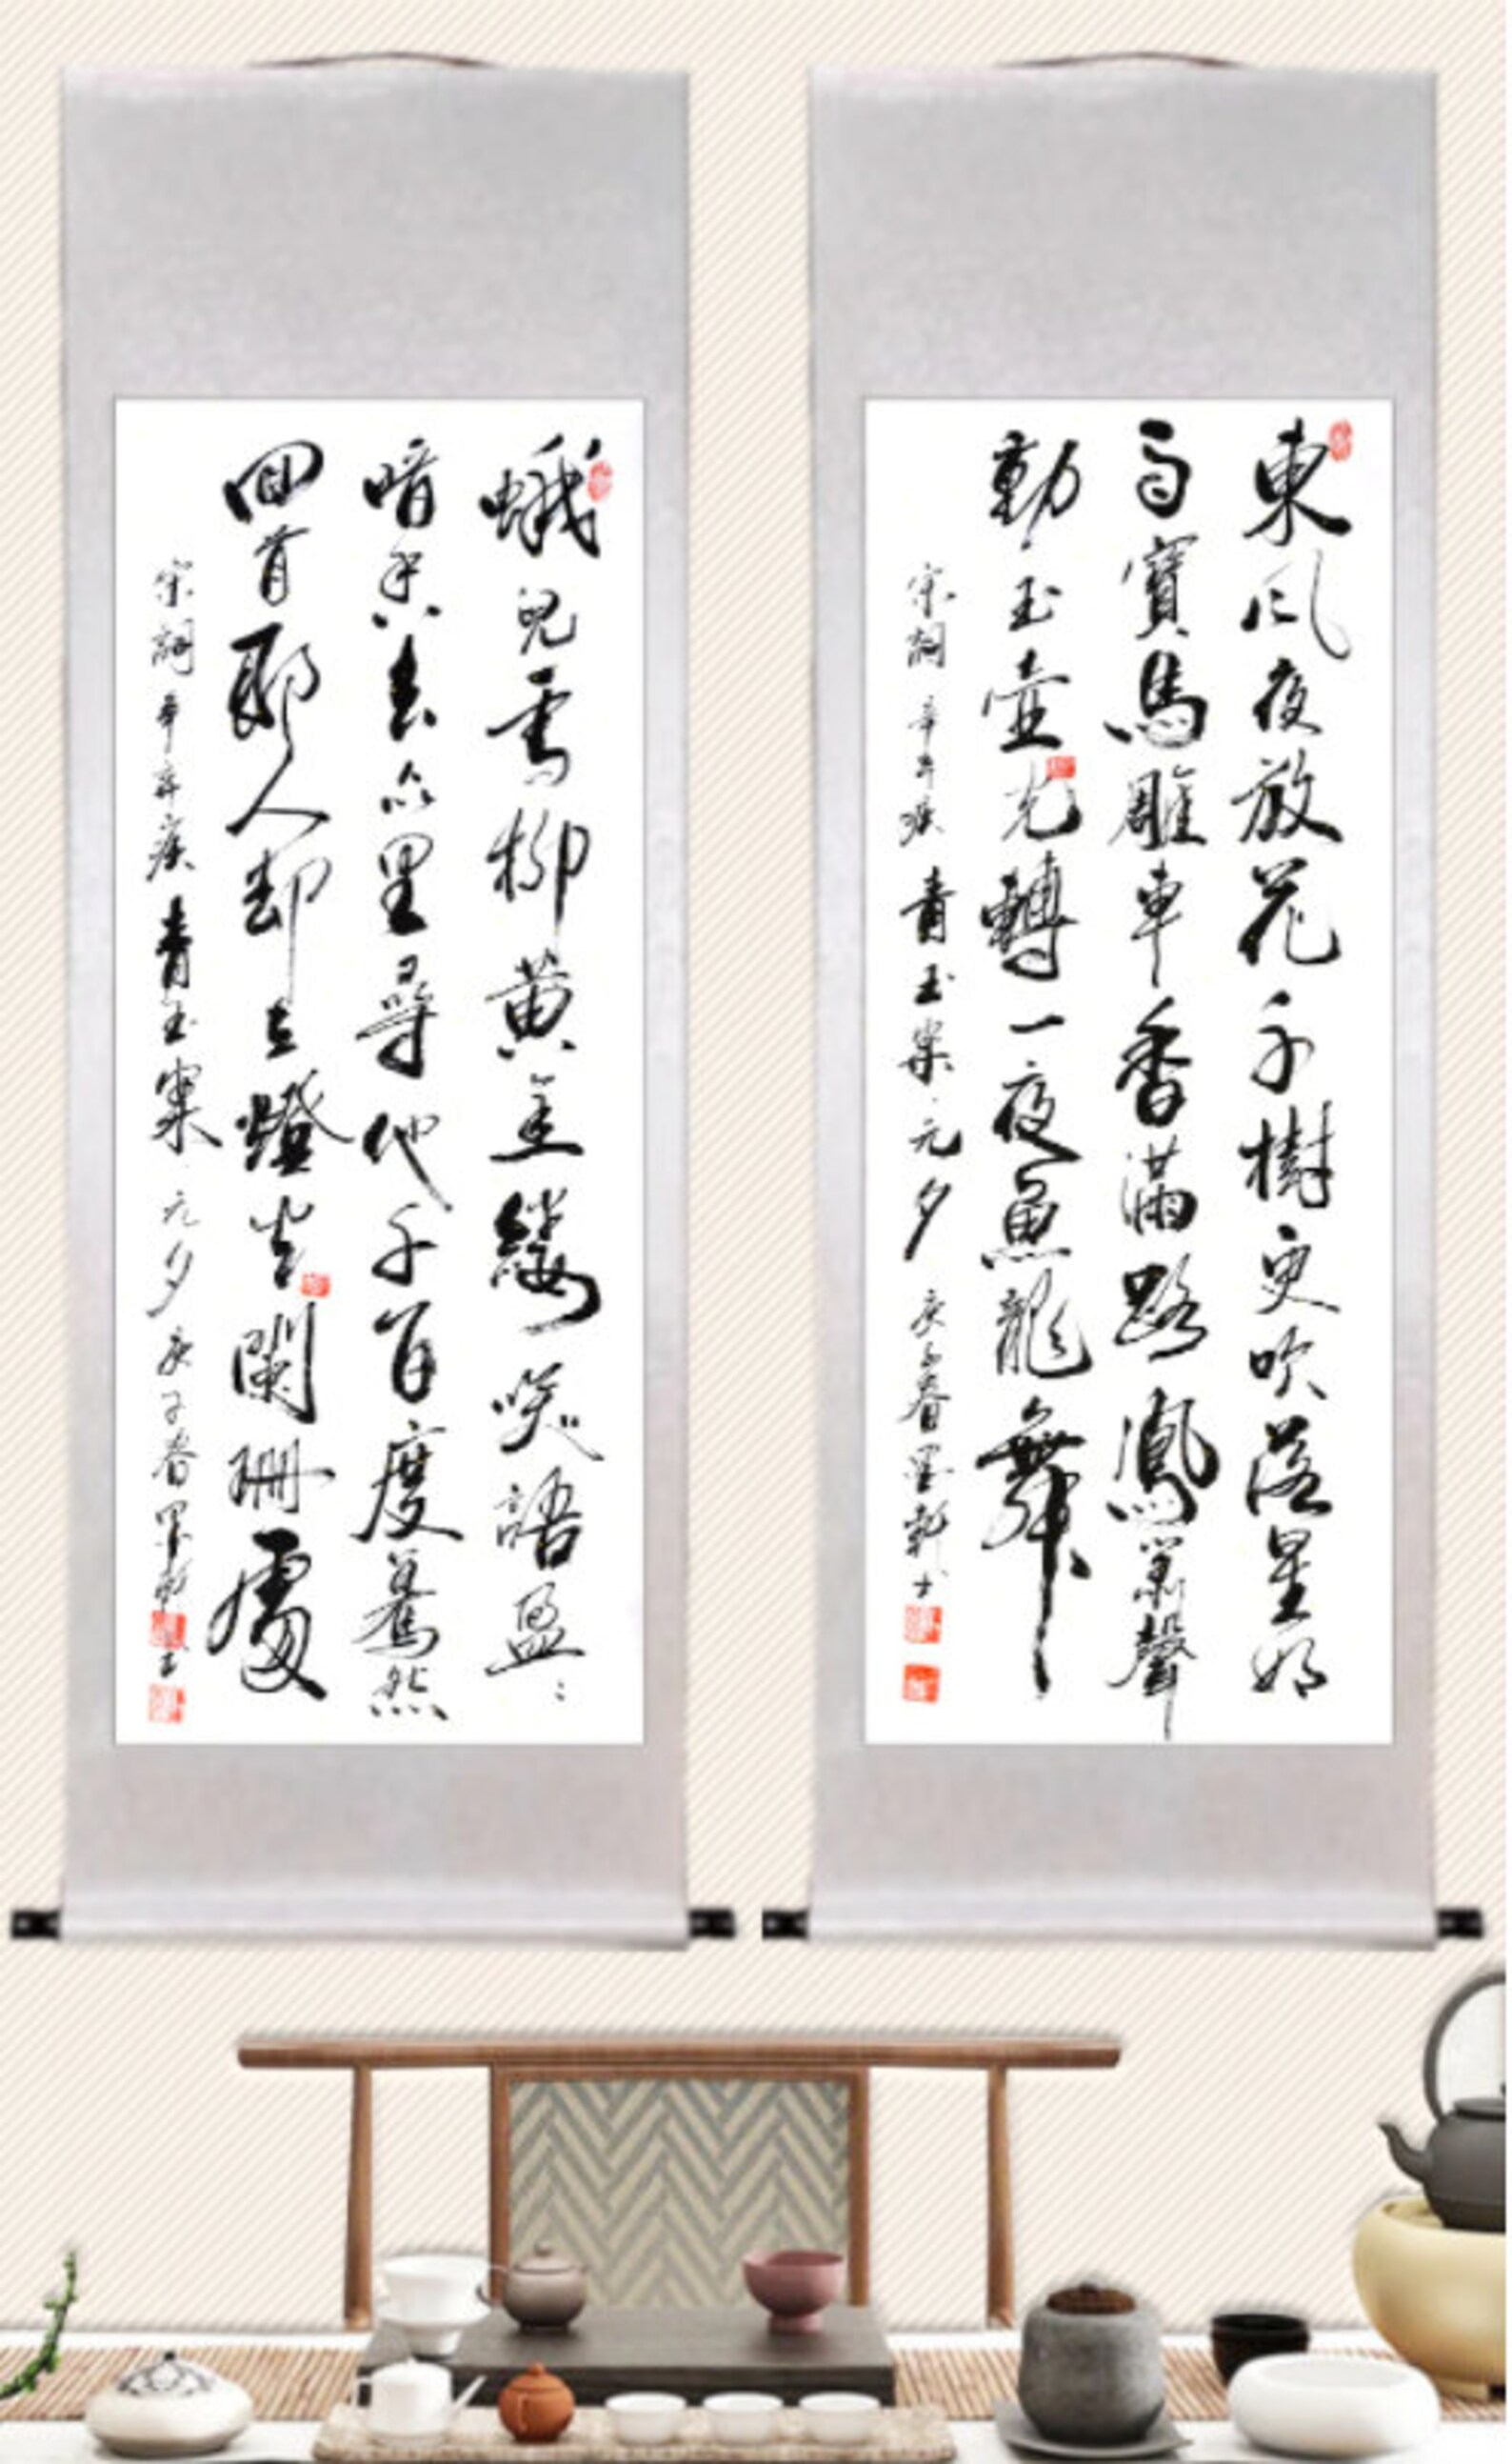 東风夜放花千樹更吹落星如
雨寶馬雕車香滿路鳳簫聲
動玉壺光轉一夜魚龍舞
宋詞辛弃疾青玉案元夕庚子春墨軒书
蛾兒雪柳黄金縷咲語盈盈
暗香去众里尋他千百度驀然
回首那人却在燈火闌珊處
宋詞辛弃疾青玉案元夕庚子春墨軒书